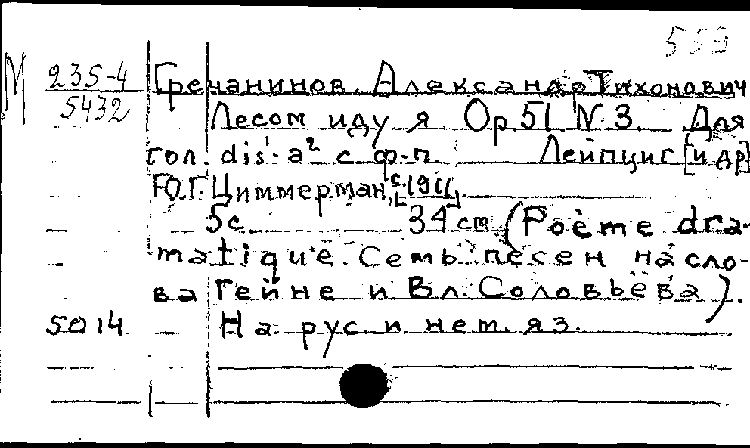 559
М 235-4 Гречанинов. Александр Тихонович
5432 Лесом иду я Op 51 N. 3. Для
гол. dis'-a² с ф-п. Лейпциг [и др]
Ю.Г. Циммерман, [с 1911].
5 с. 34 cm. (Poème dra-
matique. Семь песен на сло-
ва Гейне и Вл. Соловьёва).
5014 На рус. и нем. яз.